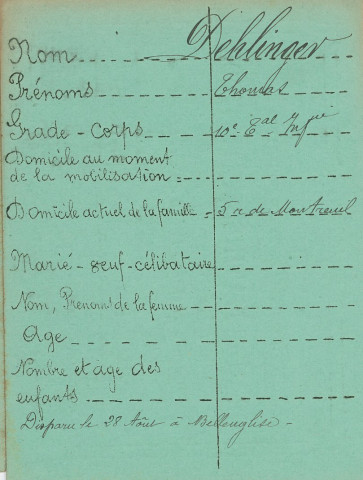 Nom Dehlinger
Prénoms Thomas
Grade - Corps 10e Eal Infie
Domicile au moment
de la mobilisation
Domicile actuel de la famille 5 r de Montreuil
Marié - veuf - célibataire
Nom, Prénoms de la femme
Age
Nombre et age des
enfants
Disparu le 28 Août à Bellenglise